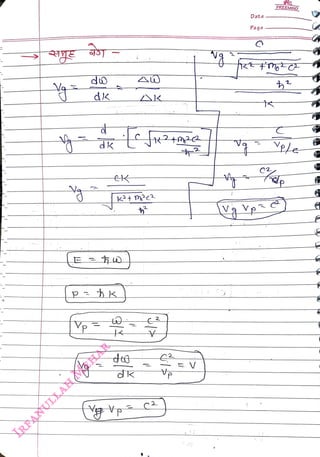 NEELKANTH
Date
Page
→ समूह वेग –
Vg = dω/dk = Δω/Δk
Vg = d/dk [c √(k² + m₀²c²/ħ²)]
Vg = ck / √(k² + m₀²c²/ħ²)
Vg = c / (√(k² + m₀²c²/ħ²) / k)
Vg = c / (Vp/c)
Vg = c²/Vp
Vg Vp = c²
E = ħω
P = ħk
Vp = ω/k = c²/V
Vg = dω/dk = c²/Vp = V
Vg Vp = c²
IRFANULLAH MAZHAR